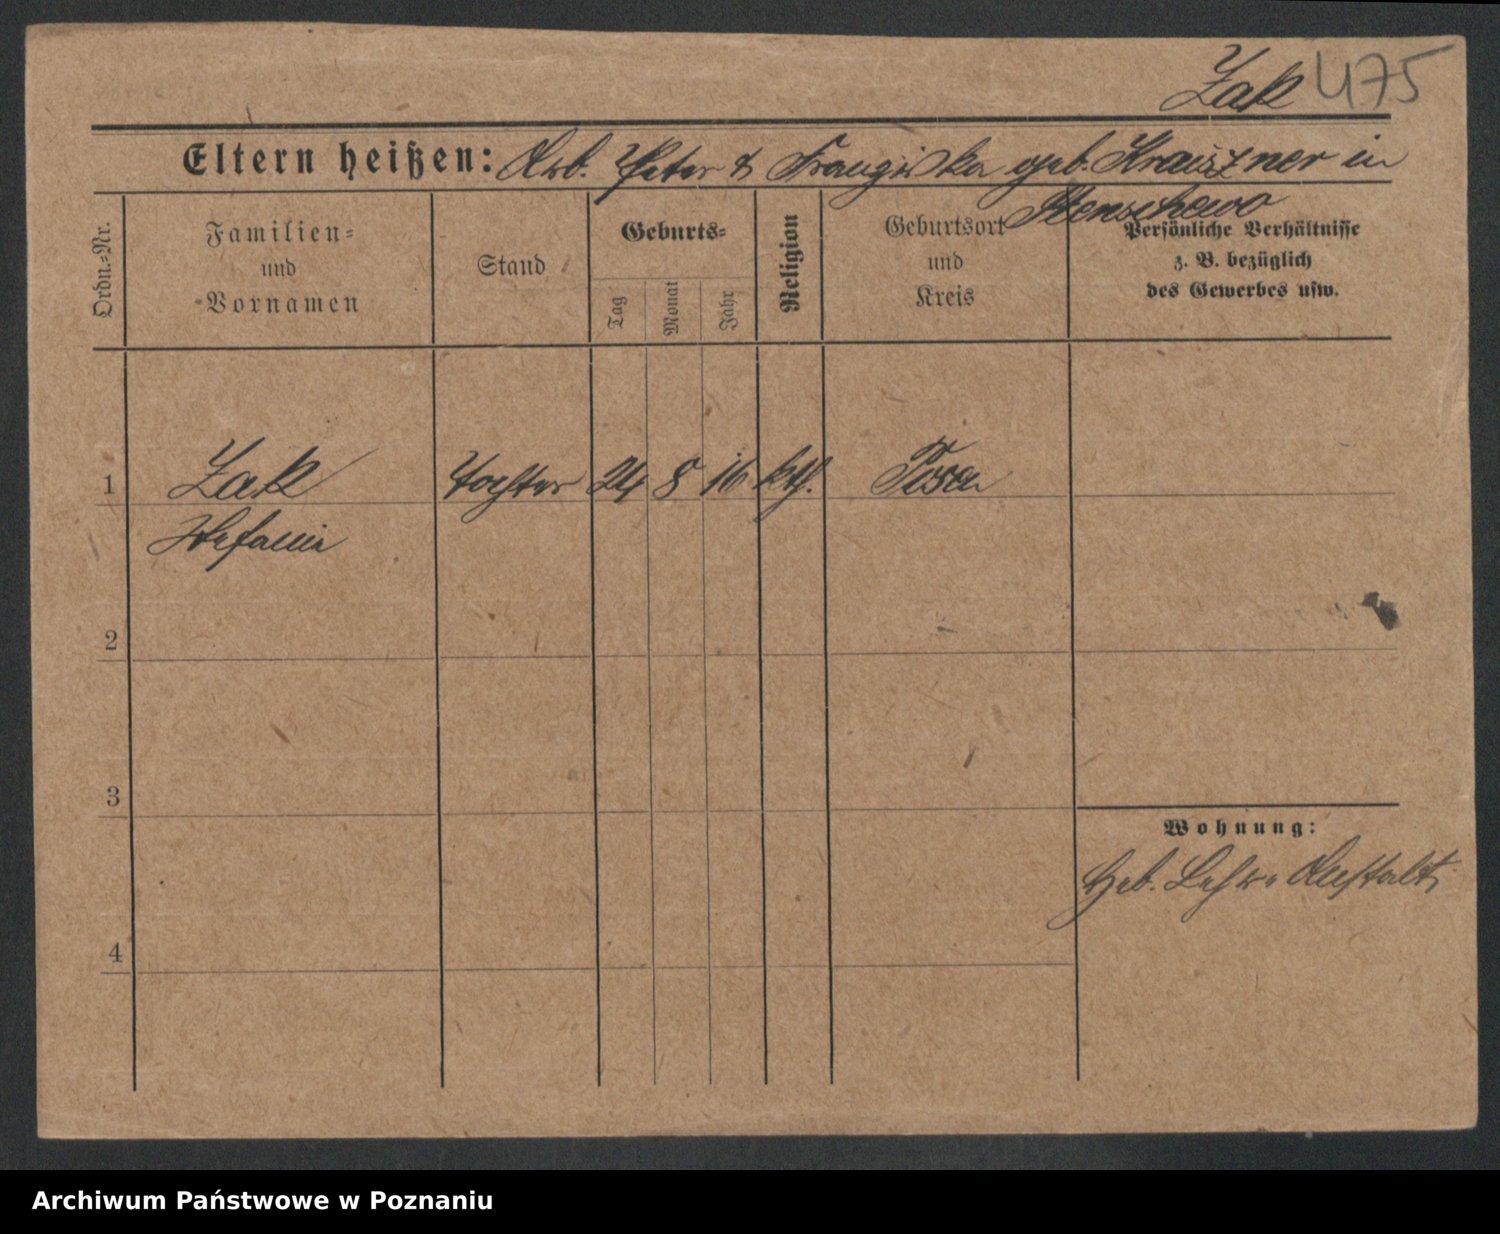 Zak 475
Eltern heißen: Arb. Peter & Franziska geb. Krauszner in
Ordn.-Nr.
Familien-
und
Vornamen
Stand
Geburts-
Tag
Monat
Jahr
Religion
Geburtsort
und
Kreis
Persönliche Verhältnisse
z. B. bezüglich
des Gewerbes usw.
1 Zak Tochter 24 8 16 kth. Posen
Stefania
2
3
Wohnung:
Heb. Lehr-Anstalt
4
Archiwum Państwowe w Poznaniu